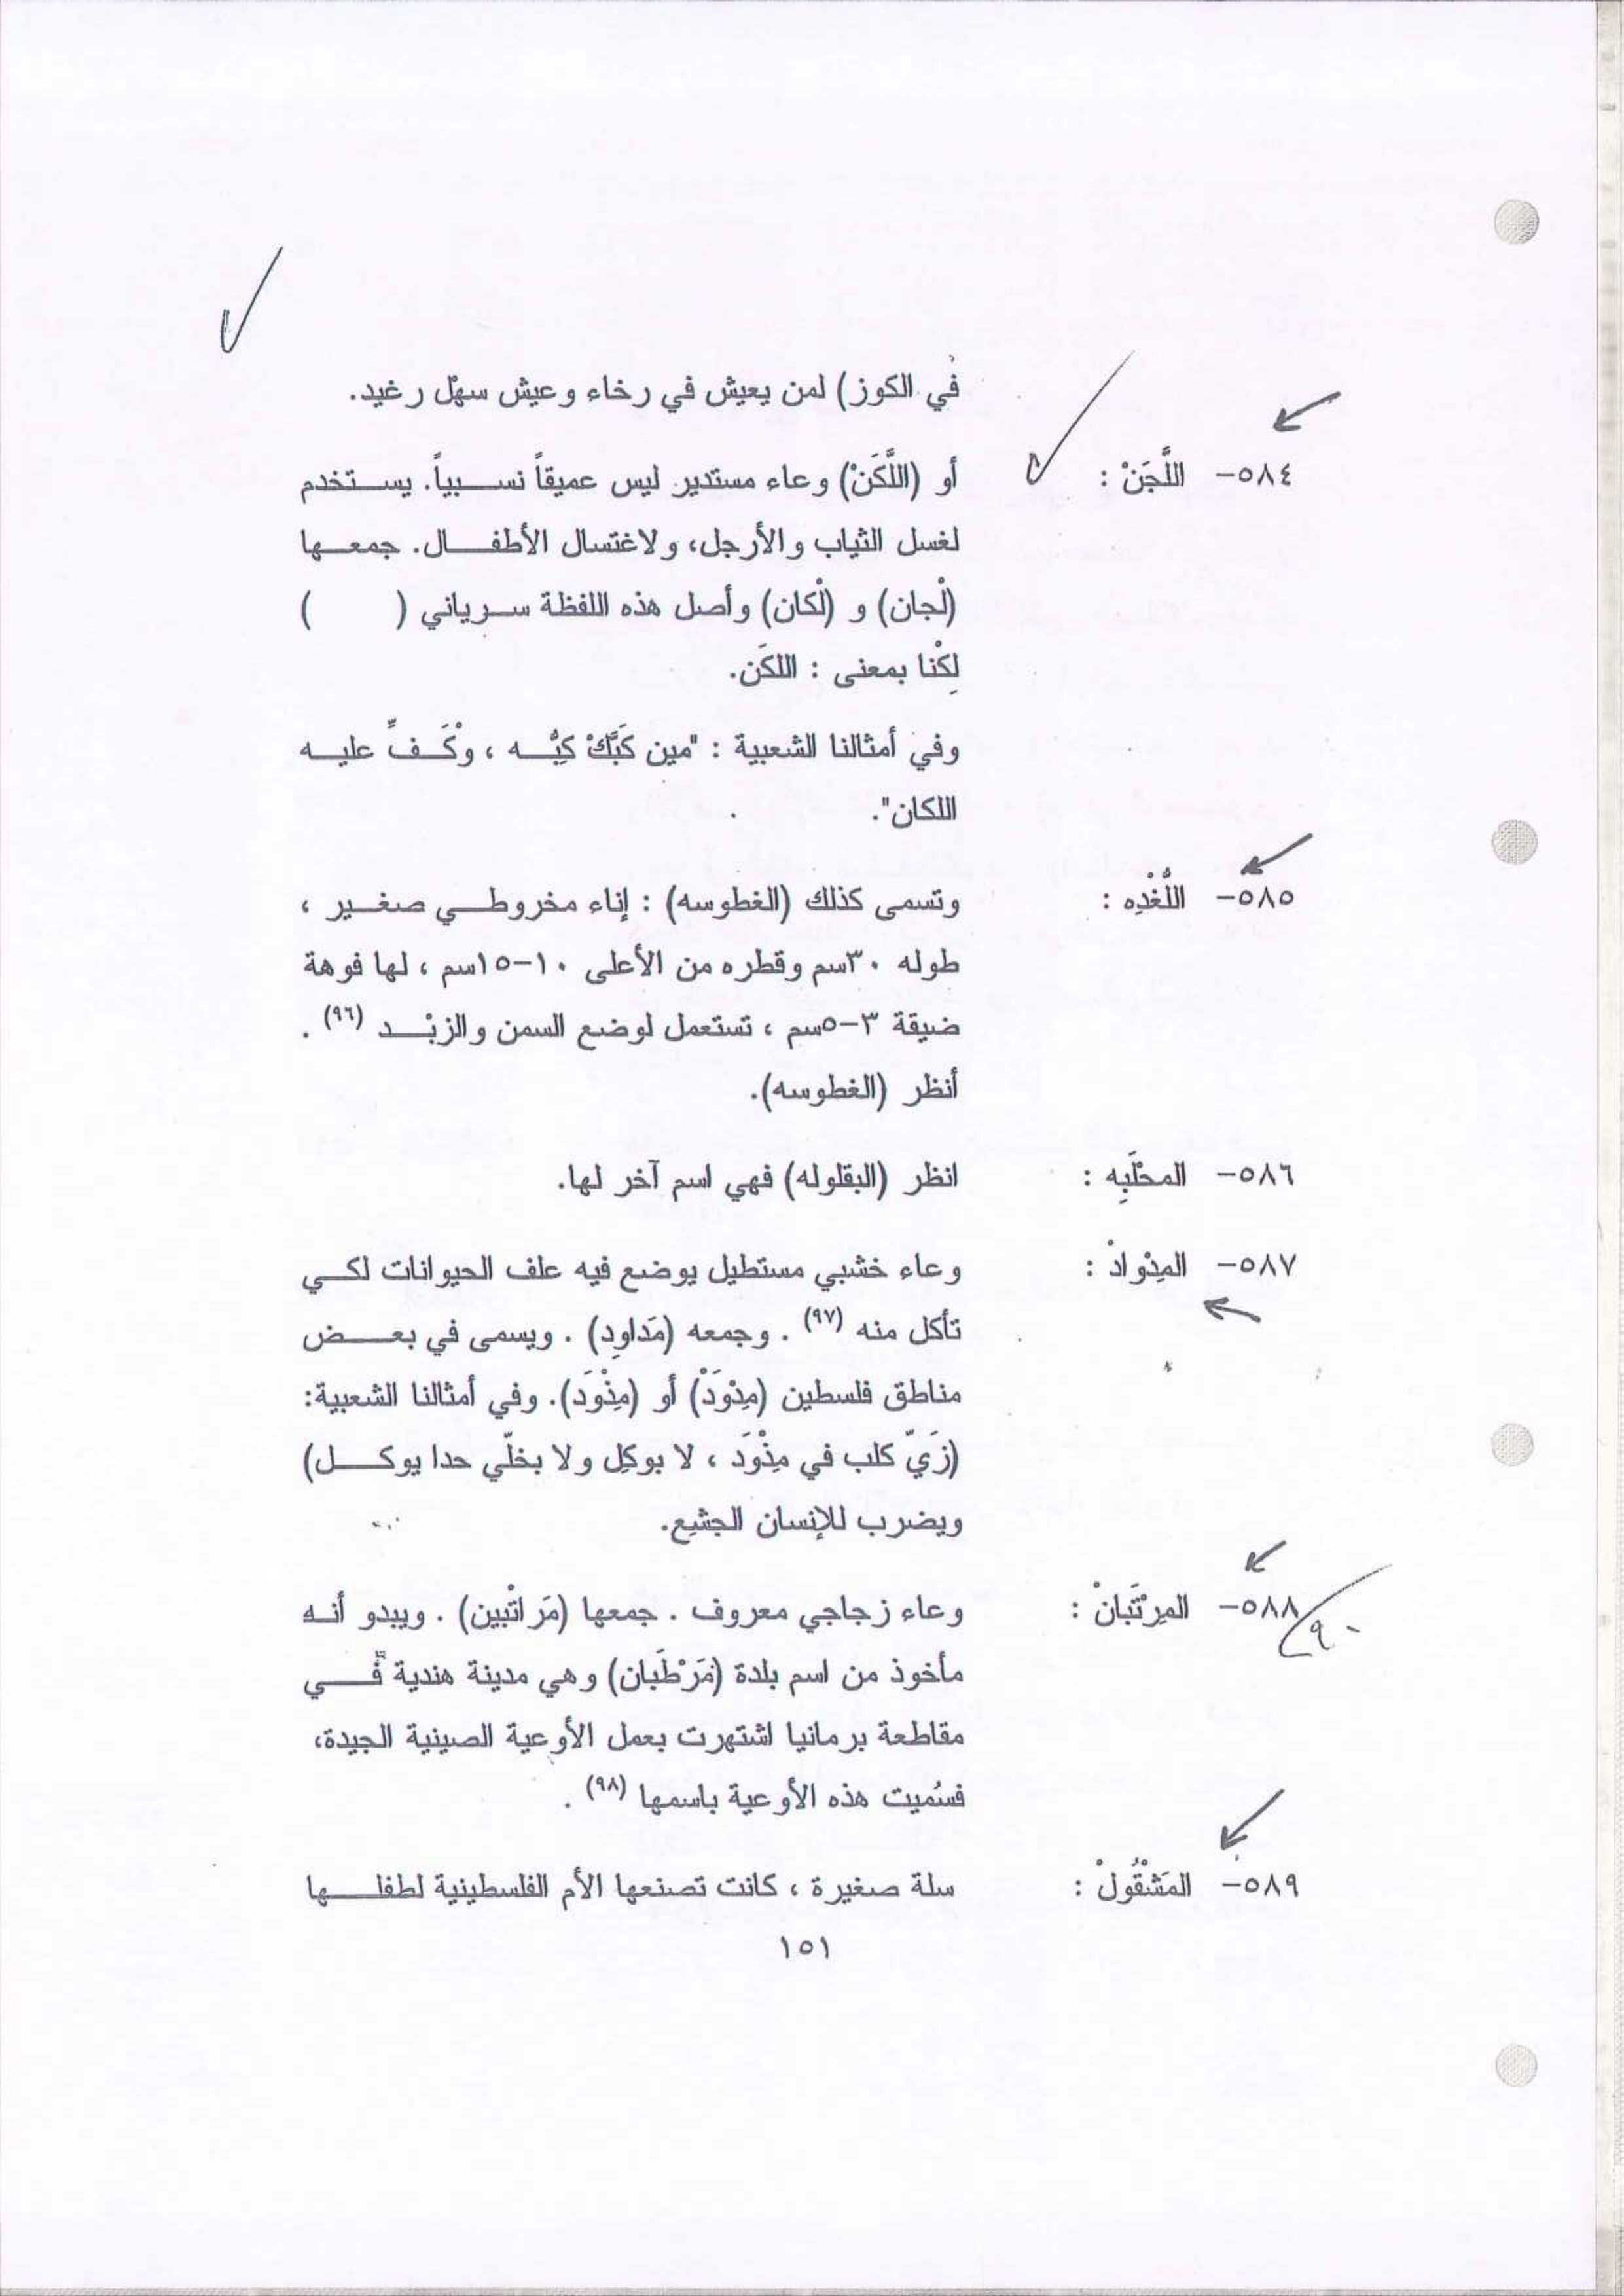 في الكوز) لمن يعيش في رخاء وعيش سهل رغيد.
٥٨٤- اللَّجَنْ : أو (اللَّكَنْ) وعاء مستدير ليس عميقاً نسبياً. يستخدم
لغسل الثياب والأرجل، ولاغتسال الأطفال. جمعها
(لْجان) و (لْكان) وأصل هذه اللفظة سرياني ( )
لِكْنا بمعنى : اللكَن.
وفي أمثالنا الشعبية : "مين كَبَّكْ كِبُّه ، وْكَفِّ عليه
اللكان".
٥٨٥- اللُّغْدِه : وتسمى كذلك (الغطوسه) : إناء مخروطي صغير ،
طوله ٣٠سم وقطره من الأعلى ١٠-١٥سم ، لها فوهة
ضيقة ٣-٥سم ، تستعمل لوضع السمن والزبْد (٩٦) .
أنظر (الغطوسه).
٥٨٦- المحْلَبِه : انظر (البقلوله) فهي اسم آخر لها.
٥٨٧- المِدْوادْ : وعاء خشبي مستطيل يوضع فيه علف الحيوانات لكي
تأكل منه (٩٧) . وجمعه (مَداوِد) . ويسمى في بعض
مناطق فلسطين (مِدْوَدْ) أو (مِذْوَد). وفي أمثالنا الشعبية:
(زَيّ كلب في مِذْوَد ، لا بوكِل ولا بخلّي حدا يوكل)
ويضرب للإنسان الجشِع.
٥٨٨- المِرْتَبانْ : وعاء زجاجي معروف . جمعها (مَراتْبين) . ويبدو أنه
٩٠
مأخوذ من اسم بلدة (مَرْطَبان) وهي مدينة هندية في
مقاطعة برمانيا اشتهرت بعمل الأوعية الصينية الجيدة،
فسُميت هذه الأوعية باسمها (٩٨) .
٥٨٩- المَشْقُولْ : سلة صغيرة ، كانت تصنعها الأم الفلسطينية لطفلها
١٥١